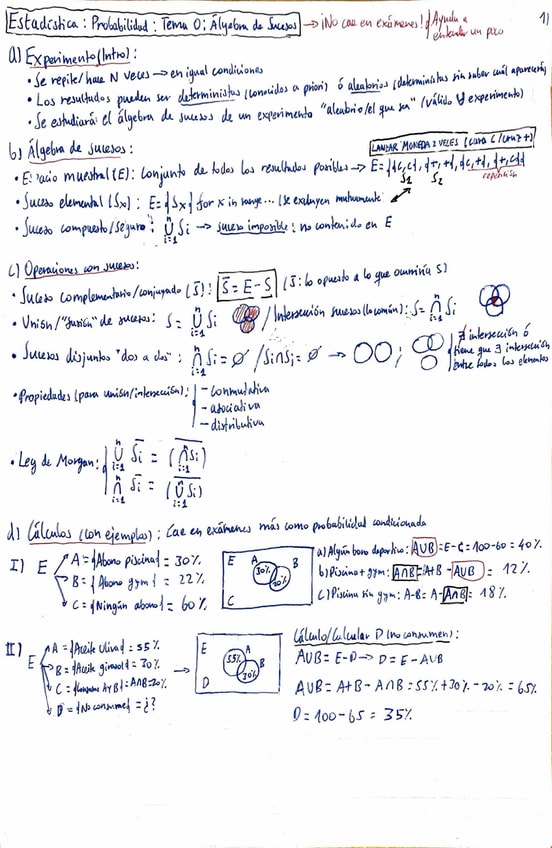 Estadística: Probabilidad: Tema 0: Álgebra de Sucesos → ¡No cae en exámenes! Ayuda a entender un poco
1)
a) Experimento (Intro):
• Se repite/hace N veces → en igual condiciones
• Los resultados pueden ser deterministas (conocidos a priori) ó aleatorios (deterministas sin saber cuál aparecerá)
• Se estudiará el álgebra de sucesos de un experimento "aleatorio/el que sea" (válido ∀ experimento)
b) Álgebra de sucesos:
LANZAR MONEDA 2 VECES (CARA C/CRUZ +)
• Espacio muestral (E): conjunto de todos los resultados posibles → E={{c,c},{+,+},{c,+},{+,c}}
S1 S2 repetición
• Suceso elemental (Sx): E={Sx} for x in range... (se excluyen mutuamente
• Suceso compuesto/seguro: ⋃ⁿᵢ₌₁ Si → suceso imposible: no contenido en E
c) Operaciones con sucesos:
• Suceso complementario/conjugado (S̄): S̄ = E - S (S̄: lo opuesto a lo que ocurriría S)
• Unión/"fusión" de sucesos: S = ⋃ⁿᵢ₌₁ Si / Intersección sucesos (lo común): S = ⋂ⁿᵢ₌₁ Si
• Sucesos disjuntos "dos a dos": ⋂ⁿᵢ₌₁ Si = ∅ / Si∩Sj = ∅ → ; ∄ intersección ó
tiene que ∃ intersección
entre todos los elementos
• Propiedades (para unión/intersección): - conmutativa
- asociativa
- distributiva
• Ley de Morgan: ⋃ⁿᵢ₌₁ S̄i = (⋂ⁿᵢ₌₁ Si)‾
⋂ⁿᵢ₌₁ S̄i = (⋃ⁿᵢ₌₁ Si)‾
d) Cálculos (con ejemplos): Cae en exámenes más como probabilidad condicionada
I) E A = {Abono piscina} = 30%
B = {Abono gym} = 22%
C = {Ningún abono} = 60%
E A B 30% 20% C
a) Algún bono deportivo: A∪B = E-C = 100-60 = 40%
b) Piscina + gym: A∩B = A+B - A∪B = 12%
c) Piscina sin gym: A-B = A - A∩B = 18%
II) E A = {Aceite oliva} = 55%
B = {Aceite girasol} = 30%
C = {Consume A y B} = A∩B = 20%
D = {No consume} = ¿?
E A B 55% 30% D
Cálculo/Calcular D (no consumen):
A∪B = E-D → D = E - A∪B
A∪B = A+B - A∩B = 55% + 30% - 20% = 65%
D = 100 - 65 = 35%